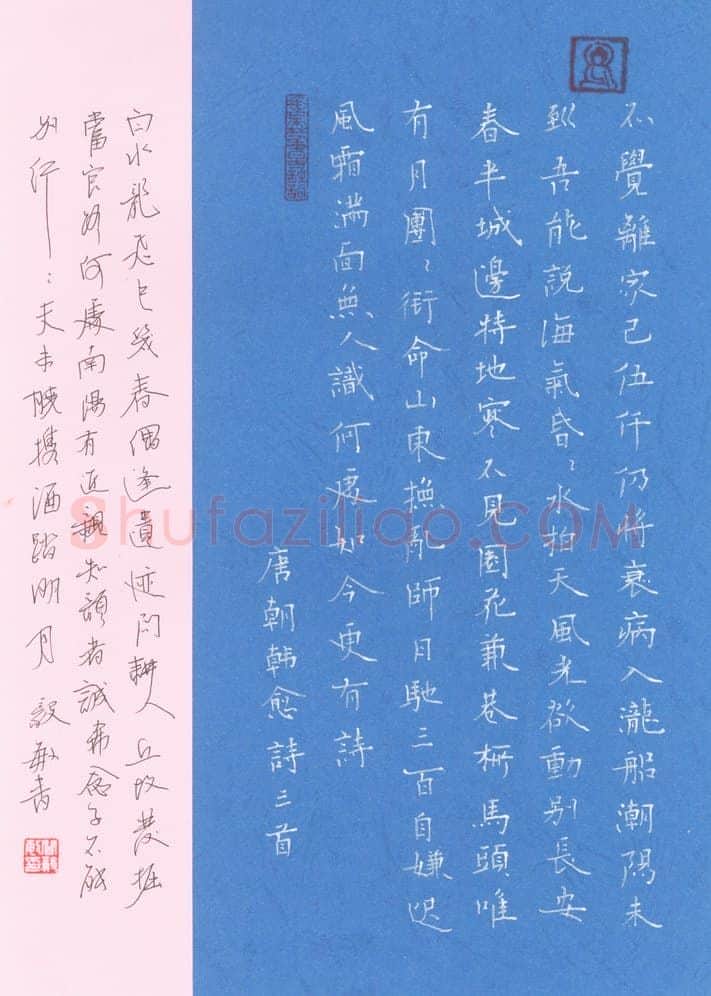 不覺離家已伍仟仍將衰病入瀧船潮陽未
到吾能説海氣昏〻水拍天風光欲動别長安
春半城邊特地寒不見園花兼巷栁馬頭唯
有月團〻銜命山東撫亂師日馳三百自嫌遲
風霜滿面無人識何處如今更有詩
唐朝韓愈詩三首
白水龍飛已幾春偶逢遺迹問耕人丘坟發掘
當官路何處南陽有近親知者誠希念子不能
别行〻天未曉攜酒踏明月 毅敏書
Shufaziliao.COM